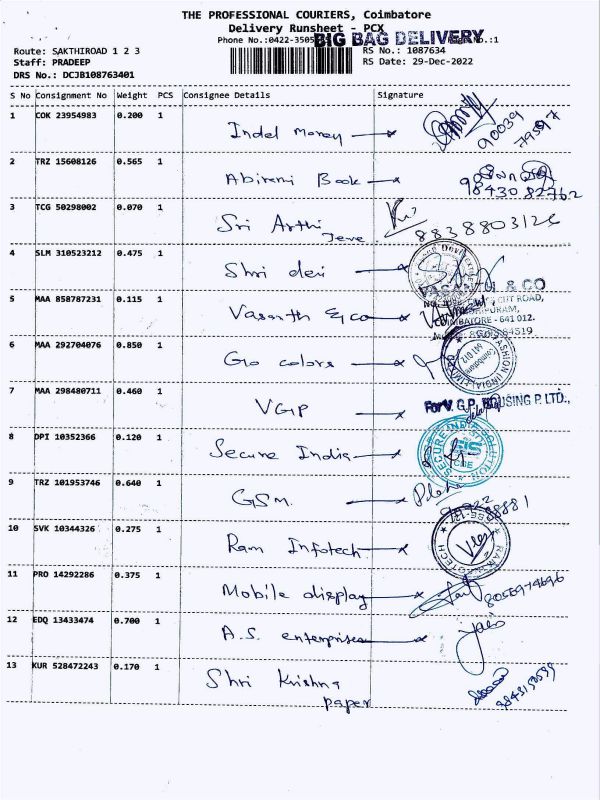 THE PROFESSIONAL COURIERS, Coimbatore
Delivery Runsheet - PCX
BIG BAG DELIVERY
Phone No.:0422-3505 :1
Route: SAKTHIROAD 1 2 3 RS No.: 1087634
Staff: PRADEEP RS Date: 29-Dec-2022
DRS No.: DCJB108763401
S No Consignment No Weight PCS Consignee Details Signature
1 COK 23954983 0.200 1 Indel Money 90039 79597
2 TRZ 15608126 0.565 1 Abirami Book 98430 82762
3 TCG 50298002 0.070 1 Sri Arthi Jewe 8838803126
4 SLM 310523212 0.475 1 Shri devi
5 MAA 858787231 0.115 1 Vasanth & co VASANTH & CO
CUT ROAD,
COIMBATORE - 641 012.
6 MAA 292704076 0.850 1 Go colors
7 MAA 298480711 0.460 1 VGP For V.G.P. HOUSING P. LTD.,
8 DPI 10352366 0.120 1 Secure India SECURE INDIA SOLUTION
CBE
9 TRZ 101953746 0.640 1 GSM.
10 SVK 10344326 0.275 1 Ram Infotech
11 PRO 14292286 0.375 1 Mobile display 8056974696
12 EDQ 13433474 0.700 1 A.S. enterprises
13 KUR 528472243 0.170 1 Shri Krishna
paper